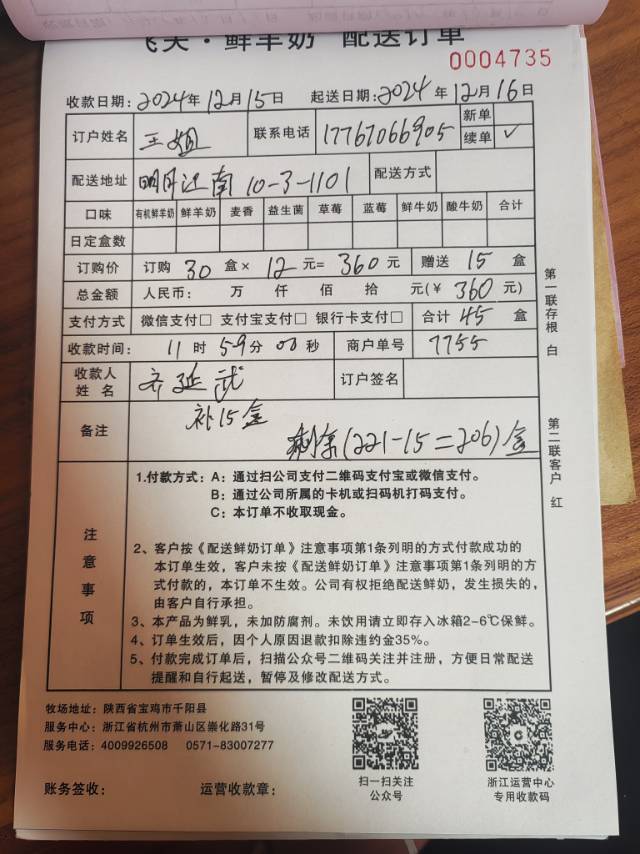 飞天·鲜羊奶 配送订单
0004735
收款日期：2024年12月15日 起送日期：2024年12月16日
订户姓名 王姐 联系电话 17767066905 新单
续单 ✓
配送地址 明月江南 10-3-1101 配送方式
口味 有机鲜羊奶 鲜羊奶 麦香 益生菌 草莓 蓝莓 鲜牛奶 酸牛奶 合计
日定盒数
订购价 订购 30 盒× 12 元= 360 元 赠送 15 盒
总金额 人民币： 万 仟 佰 拾 元(￥ 360 元)
支付方式 微信支付□ 支付宝支付□ 银行卡支付□ 合计 45 盒
收款时间： 11 时 59 分 00 秒 商户单号 7755
收款人
姓 名 齐延武 订户签名
备注 补15盒
剩余(221-15=206)盒
注意事项
1.付款方式：A：通过扫公司支付二维码支付宝或微信支付。
B：通过公司所属的卡机或扫码机打码支付。
C：本订单不收取现金。
2、客户按《配送鲜奶订单》注意事项第1条列明的方式付款成功的
本订单生效，客户未按《配送鲜奶订单》注意事项第1条列明的方
式付款的，本订单不生效。公司有权拒绝配送鲜奶，发生损失的，
由客户自行承担。
3、本产品为鲜乳，未加防腐剂。未饮用请立即存入冰箱2-6℃保鲜。
4、订单生效后，因个人原因退款扣除违约金35%。
5、付款完成订单后，扫描公众号二维码关注并注册，方便日常配送
提醒和自行起送，暂停及修改配送方式。
第一联存根 白
第二联客户 红
牧场地址：陕西省宝鸡市千阳县
服务中心：浙江省杭州市萧山区崇化路31号
服务电话：4009926508 0571-83007277
扫一扫关注
公众号
浙江运营中心
专用收款码
账务签收： 运营收款章：